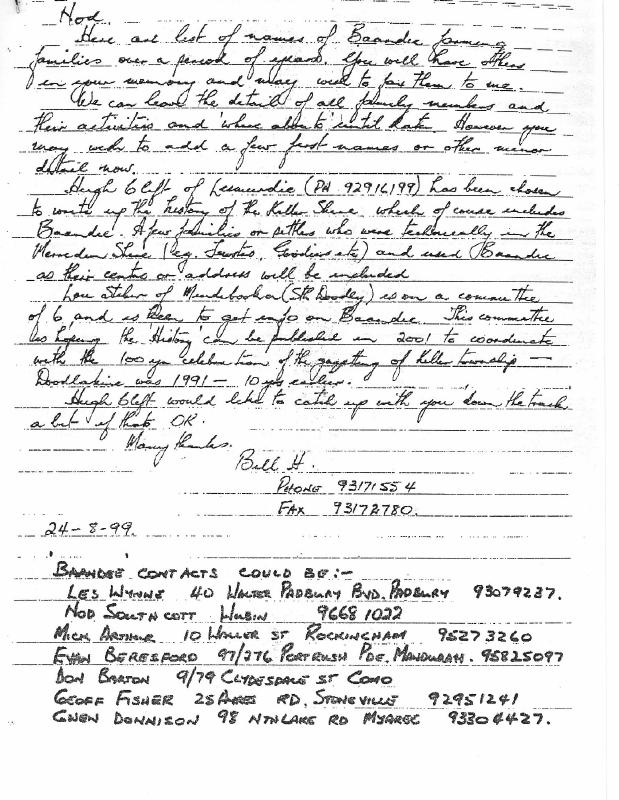 Nod.
Here are list of names of Baandee farming
families over a period of years. You will have others
in your memory and may wish to fax them to me.
We can leave the detail of all family members and
their activities and 'where abouts' until later. However you
may wish to add a few first names or other minor
detail now.
Hugh Clift of Lesmurdie (PH 92916199) has been chosen
to write up the history of the Keller Shire which of course includes
Baandee. A few families or settlers who were technically in the
Merredin Shire (eg. , Goodiers etc) and used Baandee
as their centre or address will be included
Lou of (Sth Doodly) is on a committee
of 6 and is keen to get info on Baandee. This committee
is hoping the 'History' can be published in 2001 to coordinate
with the 100 yr celebration of the gazetting of Keller township —
Doodlakine was 1991 — 10 yrs earlier.
Hugh Clift would like to catch up with you down the track
a bit if thats OK.
Many thanks.
Bill H.
PHONE 93171554
FAX 93172780.
24-8-99.
BAANDEE CONTACTS COULD BE:-
LES WYNNE 40 WALTER PADBURY BVD. PADBURY 93079237.
NOD SOUTHCOTT WUBIN 9668 1022
MICK ARTHUR 10 WALLER ST ROCKINGHAM 95273260
EVAN BERESFORD 97/276 PORTRUSH PDE. MANDURAH. 95825097
DON BARTON 9/79 CLYDESDALE ST COMO
GEOFF FISHER 25 AYRES RD, STONEVILLE 92951241
GWEN DONNISON 98 NTH LAKE RD MYAREE 93304427.